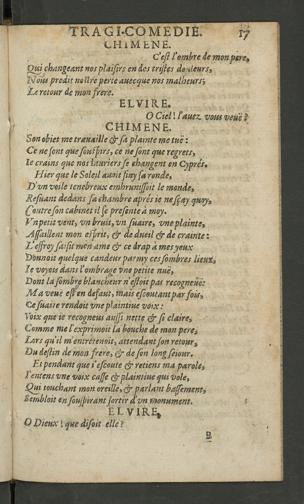 TRAGI-COMEDIE. 17
CHIMENE.
C'est l'ombre de mon pere,
Qui changeant nos plaisirs en des tristes douleurs,
Nous predit nostre perte auecque nos malheurs,
Le retour de mon frere.
ELVIRE.
O Ciel! l'auez vous veuë?
CHIMENE.
Son obiet me trauaille & sa plainte me tuë:
Ce ne sont que souspirs, ce ne sont que regrets,
Ie crains que nos lauriers se changent en Cyprés.
Hier que le Soleil auoit finy sa ronde,
D'vn voile tenebreux embrunissoit le monde,
Resuant dedans sa chambre aprés ie ne sçay quoy,
Contre son cabinet il se presente à moy.
Vn petit vent, vn bruit, vn suaire, vne plainte,
Assaillent mon esprit, & de dueil & de crainte:
L'effroy saisit mon ame & ce drap à mes yeux
Donnoit quelque candeur parmy ces sombres lieux,
Ie voyois dans l'ombrage vne petite nuë,
Dont la sombre blancheur n'estoit pas recogneuë:
Ma veuë est en defaut, mais escoutant par fois,
Ce suaire rendoit vne plaintiue voix:
Voix que ie recogneus aussi nette & si claire,
Comme me l'exprimoit la bouche de mon pere,
Lors qu'il m'entretenoit, attendant son retour,
Du destin de mon frere, & de son long seiour.
Et pendant que i'escoute & retiens ma parole,
I'entens vne voix casse & plaintiue qui vole,
Qui touchant mon oreille, & parlant bassement,
Sembloit en souspirant sortir d'vn monument.
ELVIRE,
O Dieux! que disoit elle?
B